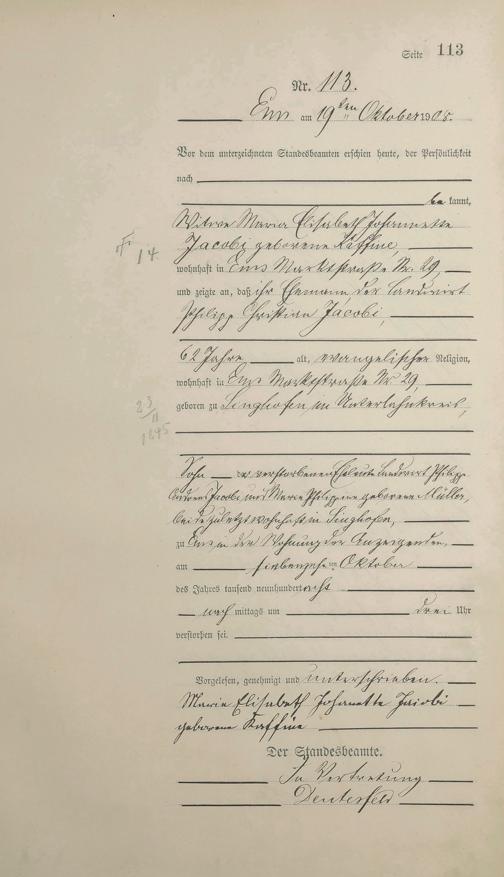 Seite 113
Nr. 113.
Ems am 19ten Oktober 1908.
Vor dem unterzeichneten Standesbeamten erschien heute, der Persönlichkeit
nach
be kannt,
Witwe Maria Elisabeth Johannette
Jacobi geborene
14
wohnhaft in Ems Marktstraße Nr. 29,
und zeigte an, daß ihr Ehemann der Landwirt
Philipp Christian Jacobi,
62 Jahre alt, evangelischer Religion,
wohnhaft in Ems Marktstraße Nr 29,
geboren zu Singhofen, im Unterlahnkreis,
Sohn der verstorbenen Eheleute Landwirt Philipp
Jacobi und Marie Philippine geborene Müller,
beide zuletzt wohnhaft in Singhofen,
zu Ems in der Wohnung der Anzeigenden,
am siebenzehnten Oktober
des Jahres tausend neunhundert acht
nach mittags um drei Uhr
verstorben sei.
Vorgelesen, genehmigt und unterschrieben.
Marie Elisabeth Johanette Jacobi
geborene
Der Standesbeamte.
In Vertretung